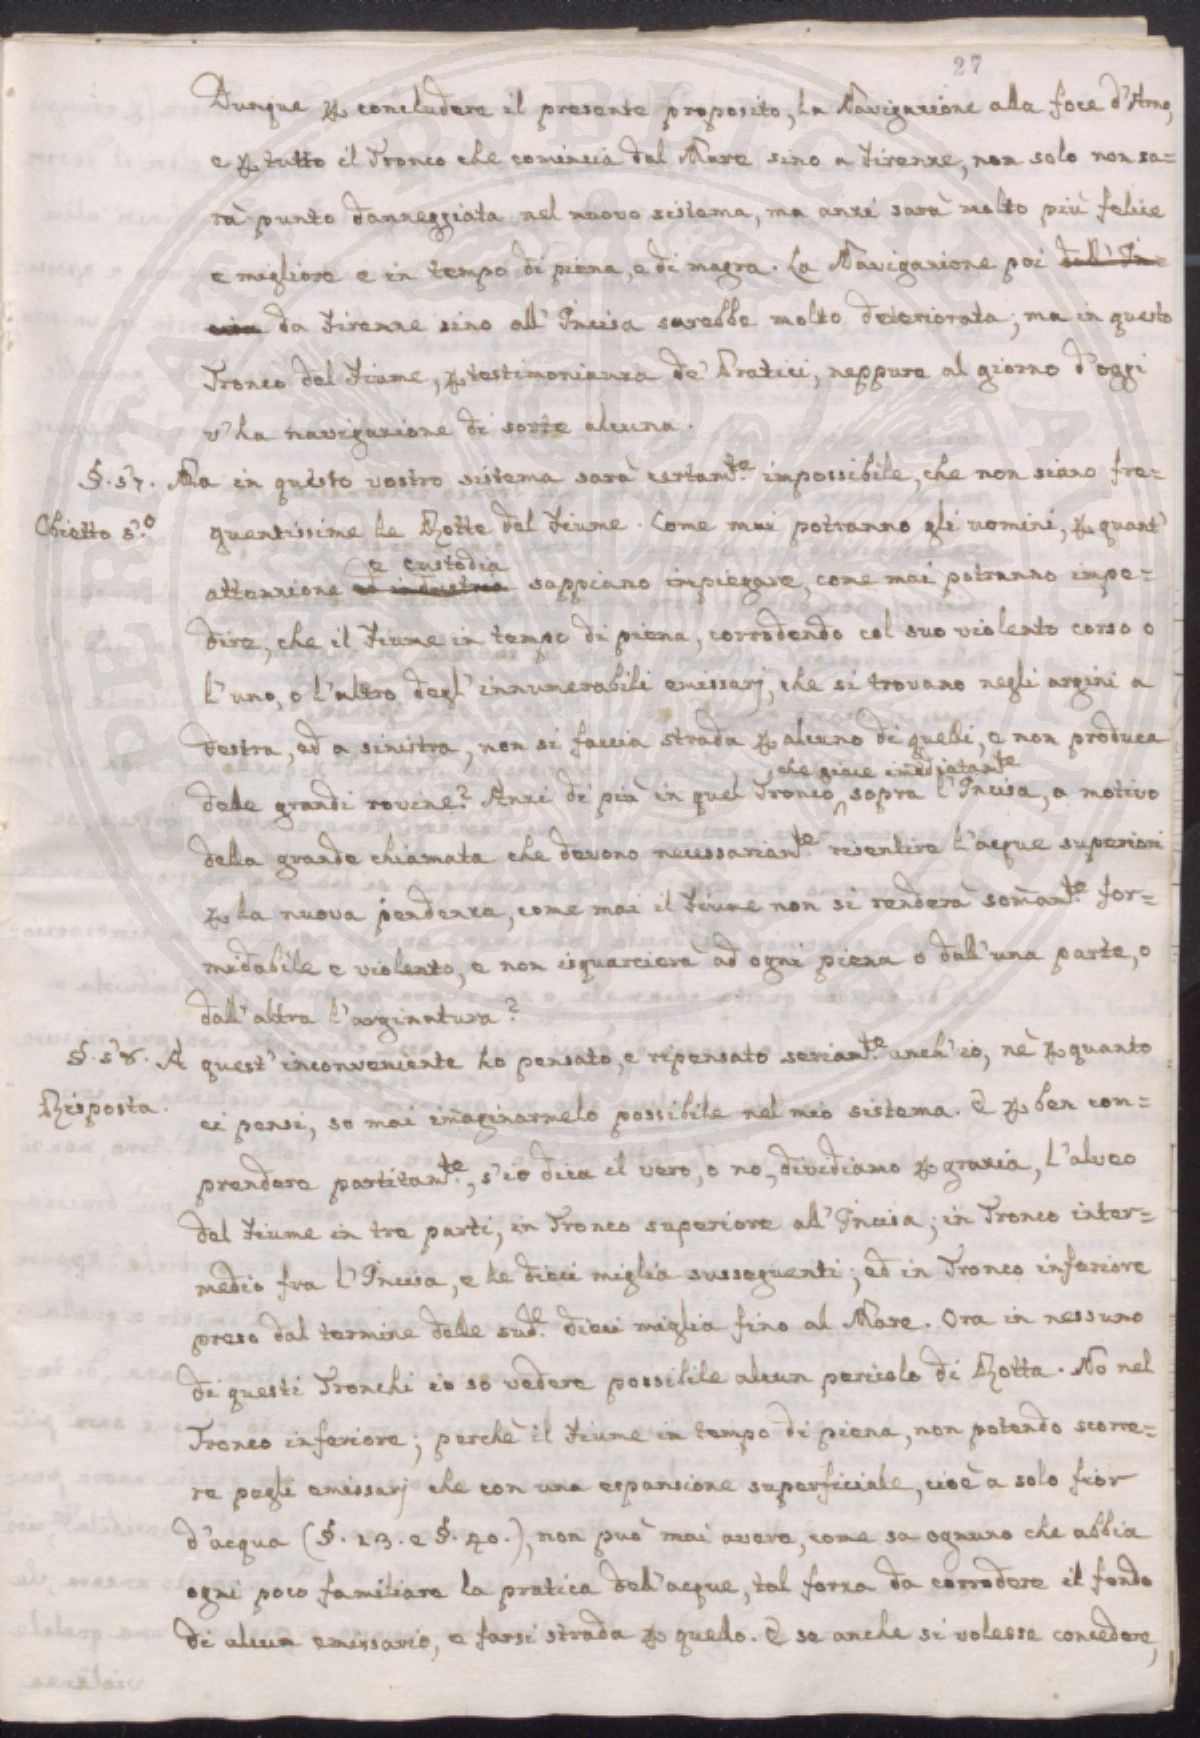 27
Dunque ꝑ concludere il presente proposito, la Navigazione alla foce d'Arno,
e ꝑ tutto il Tronco che comincia dal Mare sino a Firenze, non solo non sa=
rà punto danneggiata nel nuovo sistema, ma anzi sarà molto più felice
e migliore e in tempo di piena, e di magra. La Navigazione poi dall'In=
cisa da Firenze sino all'Incisa sarebbe molto deteriorata; ma in questo
Tronco del Fiume, ꝑ testimonianza de' Pratici, neppure al giorno d'oggi
v'ha navigazione di sorte alcuna.
§. 57. Ma in questo vostro sistema sarà certam.te impossibile, che non siano fre=
Obietto 5.o quentissime le Rotte del Fiume. Come mai potranno gli uomini, ꝑ quant'
e custodia
attenzione ed industria sappiano impiegare, come mai potranno impe=
dire, che il Fiume in tempo di piena, corrodendo col suo violento corso o
l'uno, o l'altro degl'innumerabili emissarj, che si trovano negli argini a
destra, ed a sinistra, non si faccia strada ꝑ alcuno di quelli, e non produca
che giace imediatam.te
delle grandi rovine? Anzi di più in quel Tronco sopra l'Incisa, a motivo
della grande chiamata che devono necessariam.te risentire l'acque superiori
ꝑ la nuova pendenza, come mai il Fiume non si renderà somam.te for=
midabile e violento, e non isquarcierà ad ogni piena o dall'una parte, o
dall'altra l'arginatura?
§. 58. A quest'inconveniente ho pensato, e ripensato seriam.te anch'io, nè ꝑ quanto
Risposta. ci pensi, so mai imaginarmelo possibile nel mio sistema. E ꝑ ben con=
prendere partitam.te, s'io dica il vero, o no, dividiamo ꝑ grazia, l'alveo
del Fiume in tre parti; in Tronco superiore all'Incisa; in Tronco inter=
medio fra l'Incisa, e le dieci miglia susseguenti; ed in Tronco inferiore
preso dal termine delle sud.e dieci miglia fino al Mare. Ora in nessuno
di questi Tronchi io so vedere possibile alcun pericolo di Rotta. No nel
Tronco inferiore; perchè il Fiume in tempo di piena, non potendo scorre=
re pegli emissarj che con una espansione superficiale, cioè a solo fior
d'acqua (§. 13. e §. 40.), non può mai avere, come sa ognuno che abbia
ogni poco familiare la pratica dell'acque, tal forza da corrodere il fondo
di alcun emissario, e farsi strada ꝑ quello. E se anche si volesse concedere,
violenza